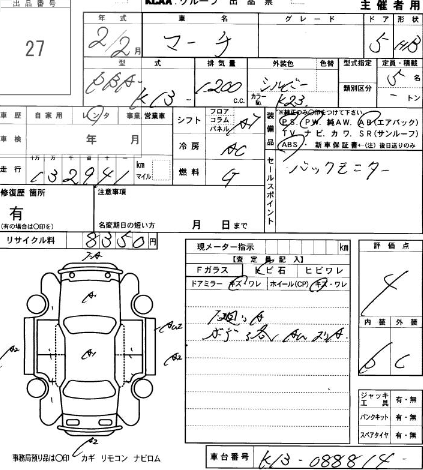 出品番号 KCAA グループ 出品票 主催者用
27
年式 車名 グレード ドア 形状
2/2月 マーチ 5 HB
型式 排気量 外装色 色替 型式指定 定員・積載
類別区分
DBA-K13 1200 c.c. シルバー カラーNo. K23 5名
トン
車歴 自家用 レンタ 事業 営業車
シフト フロア コラム パネル AT
装備品 ※純正のみ○印をつけて下さい
PS. PW. 純AW. AB(エアバック)
TV ナビ. カワ. SR(サンルーフ)
ABS ・新車保証書←(注)後日送りのみ
車検 年 月
冷房 AC
走行 十万 万 千 百 十 一
132941 km マイル
燃料 G
セールスポイント バックモニター
修復歴 箇所 注意事項
有
(有の場合は○印を) 名変期日の短い方 月 日まで
リサイクル料 8350円
現メーター指示 km 評価点
【査定員記入】
Fガラス ヒビ石 ヒビワレ 4
ドアミラー キズ・ワレ ホイール(CP) キズ・ワレ
内装 外装
b C
A1
A1
A2
A2
A2
ジャッキ 工具 有・無
パンクキット 有・無
スペアタイヤ 有・無
事務局預り品は○印 カギ リモコン ナビロム
車台番号 K13-088814